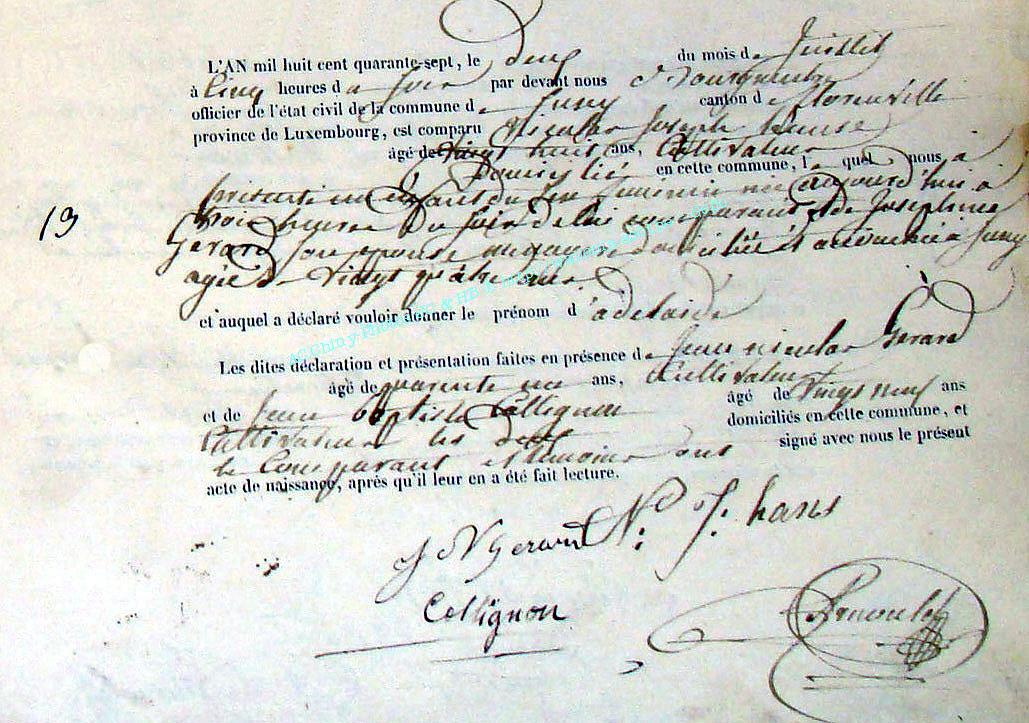 L'AN mil huit cent quarante-sept, le deux du mois de Juillet
à Cinq heures du soir par devant nous Bourgmestre
officier de l'état civil de la commune de Suxy canton de florenville
province de Luxembourg, est comparu Nicolas Joseph
âgé de vingt huit ans, Cultivateur
Domicilié en cette commune, lequel nous a
présenté un enfant du sexe féminin né aujourd'hui à
trois heures du soir de lui comparant et de Josephine
13
Gerard son épouse ménagère domiciliée et accouchée à Suxy
agée de vingt quatre ans.
et auquel a déclaré vouloir donner le prénom d'adelaide
Les dites déclaration et présentation faites en présence de Jean nicolas Gerard
âgé de quarante un ans, Cultivateur
et de Jean Baptiste Collignon âgé de vingt neuf ans
Cultivateur les deux domiciliés en cette commune, et
le Comparant et témoins ont signé avec nous le présent
acte de naissance, après qu'il leur en a été fait lecture.
J N Gerard N. J. hans
Collignon